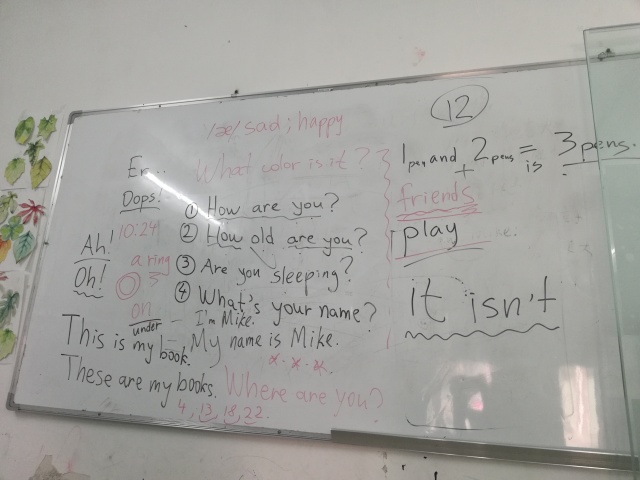 /æ/ sad; happy
12
Er...
What color is it?
1 pen and 2 pens = 3 pens.
+ is
Oops!
friends
① How are you?
10:24
② How old are you?
play
Ah!
a ring
③ Are you sleeping?
Oh!
④ What's your name?
it isn't
on
under
I'm Mike.
This is my book. My name is Mike.
These are my books. Where are you?
4, 13, 18, 22.